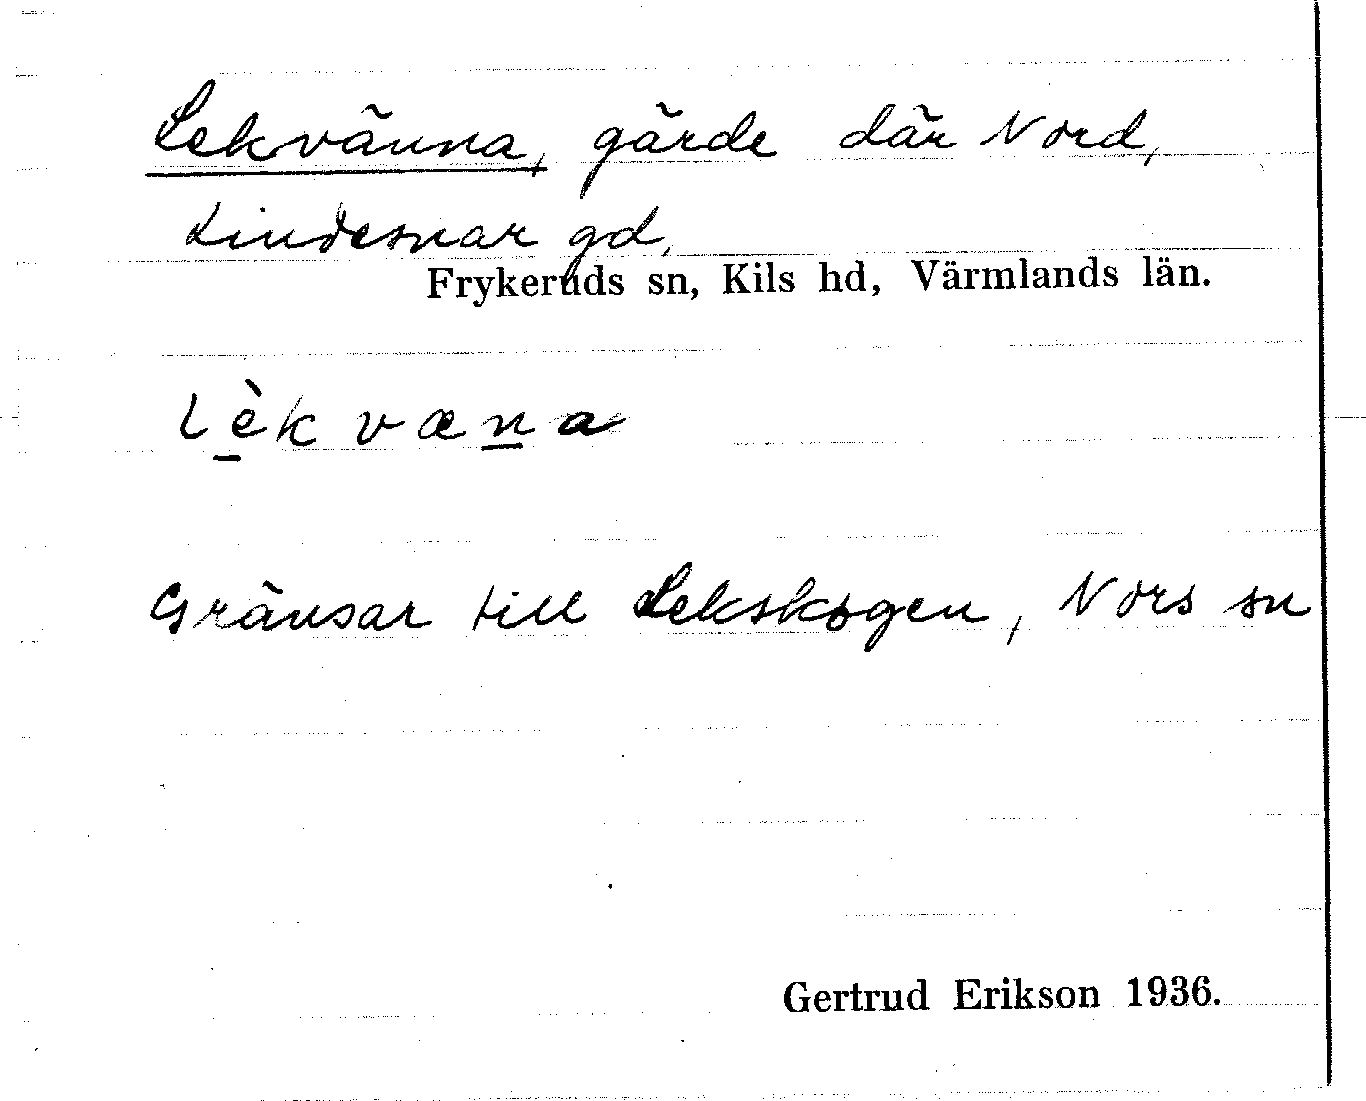 Lekvänna, gärde där Nord,
Lindesnar gd,
Frykeruds sn, Kils hd, Värmlands län.
lè̱kvæṉa
Gränsar till Lekskogen, Nors sn
Gertrud Erikson 1936.